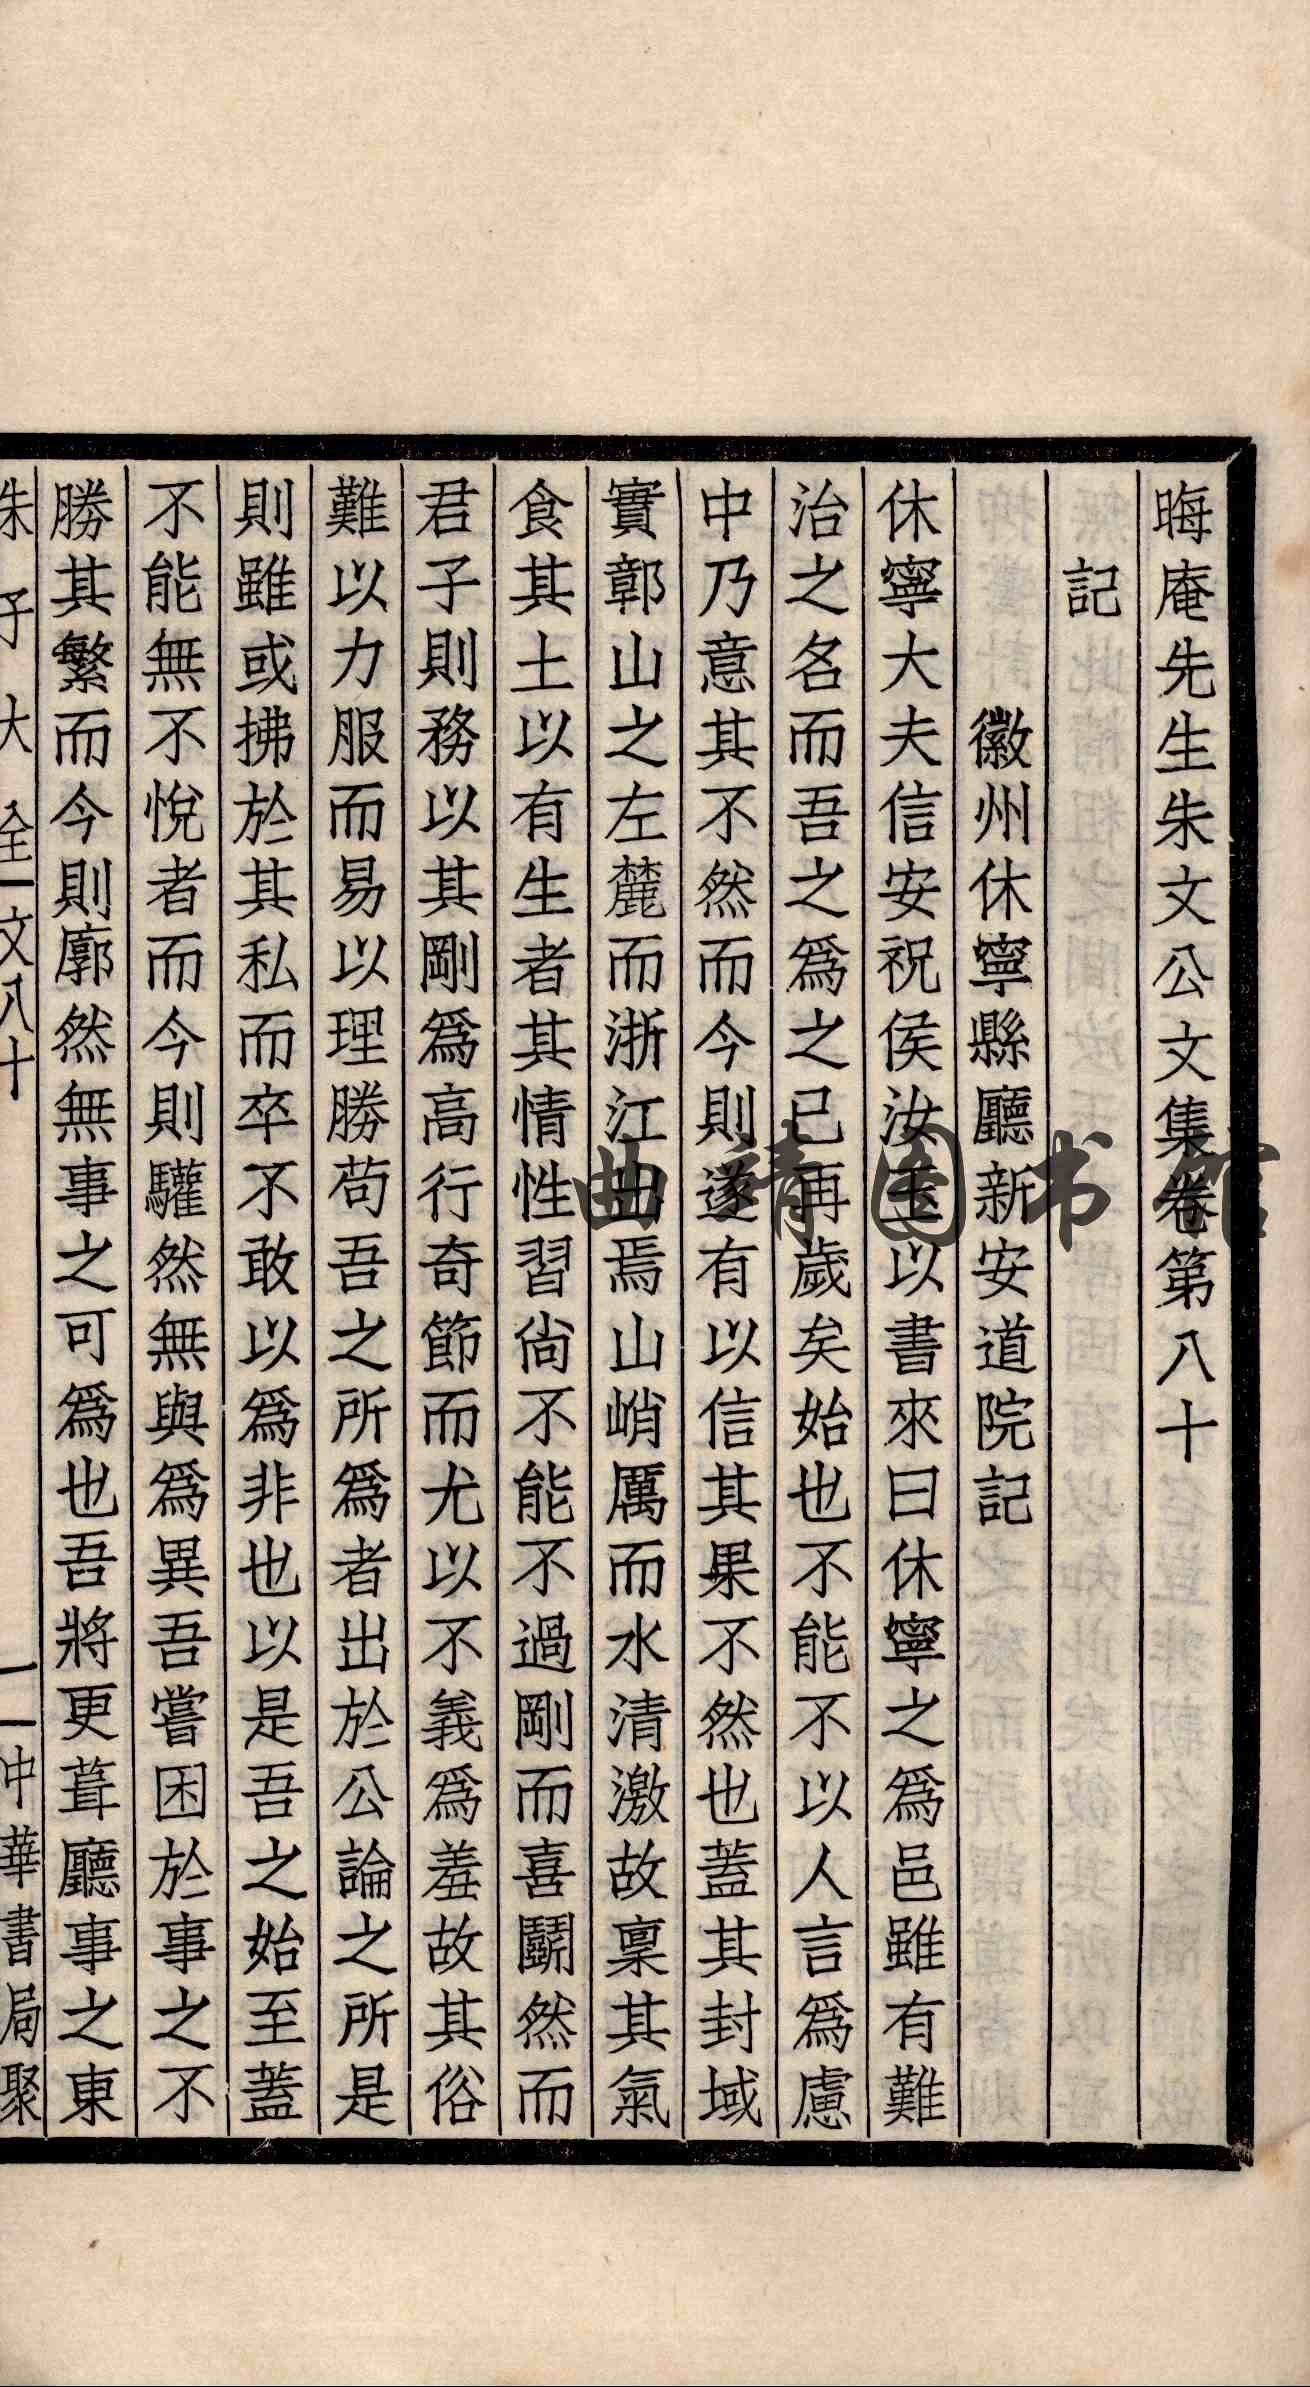 晦庵先生朱文公文集卷第八十
記
徽州休寧縣廳新安道院記
休寧大夫信安祝侯汝玉以書來曰休寧之爲邑雖有難
治之名而吾之爲之已再歲矣始也不能不以人言爲慮
中乃意其不然而今則遂有以信其果不然也蓋其封域
實鄣山之左麓而浙江出焉山峭厲而水清激故稟其氣
食其土以有生者其情性習尙不能不過剛而喜鬭然而
君子則務以其剛爲高行奇節而尤以不義爲羞故其俗
難以力服而易以理勝苟吾之所爲者出於公論之所是
則雖或拂於其私而卒不敢以爲非也以是吾之始至蓋
不能無不悅者而今則驩然無與爲異吾嘗困於事之不
勝其繁而今則廓然無事之可爲也吾將更葺廳事之東
朱子大全 文八十 一 中華書局聚
曲靖图书馆